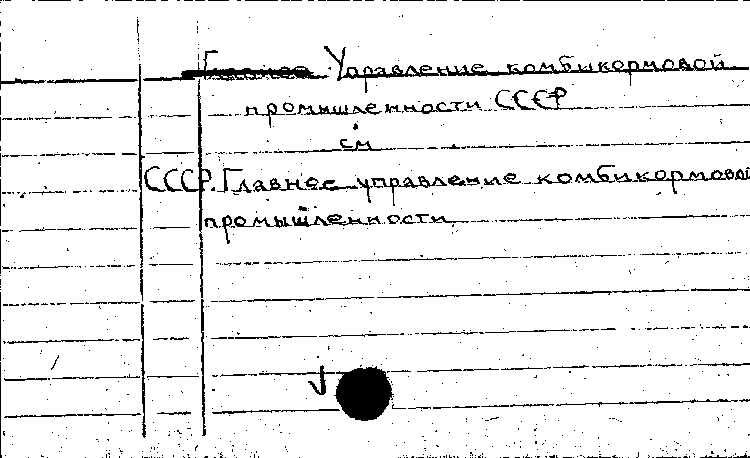 Главное Управление комбикормовой
промышленности СССР
см
СССР. Главное управление комбикормовой
промышленности